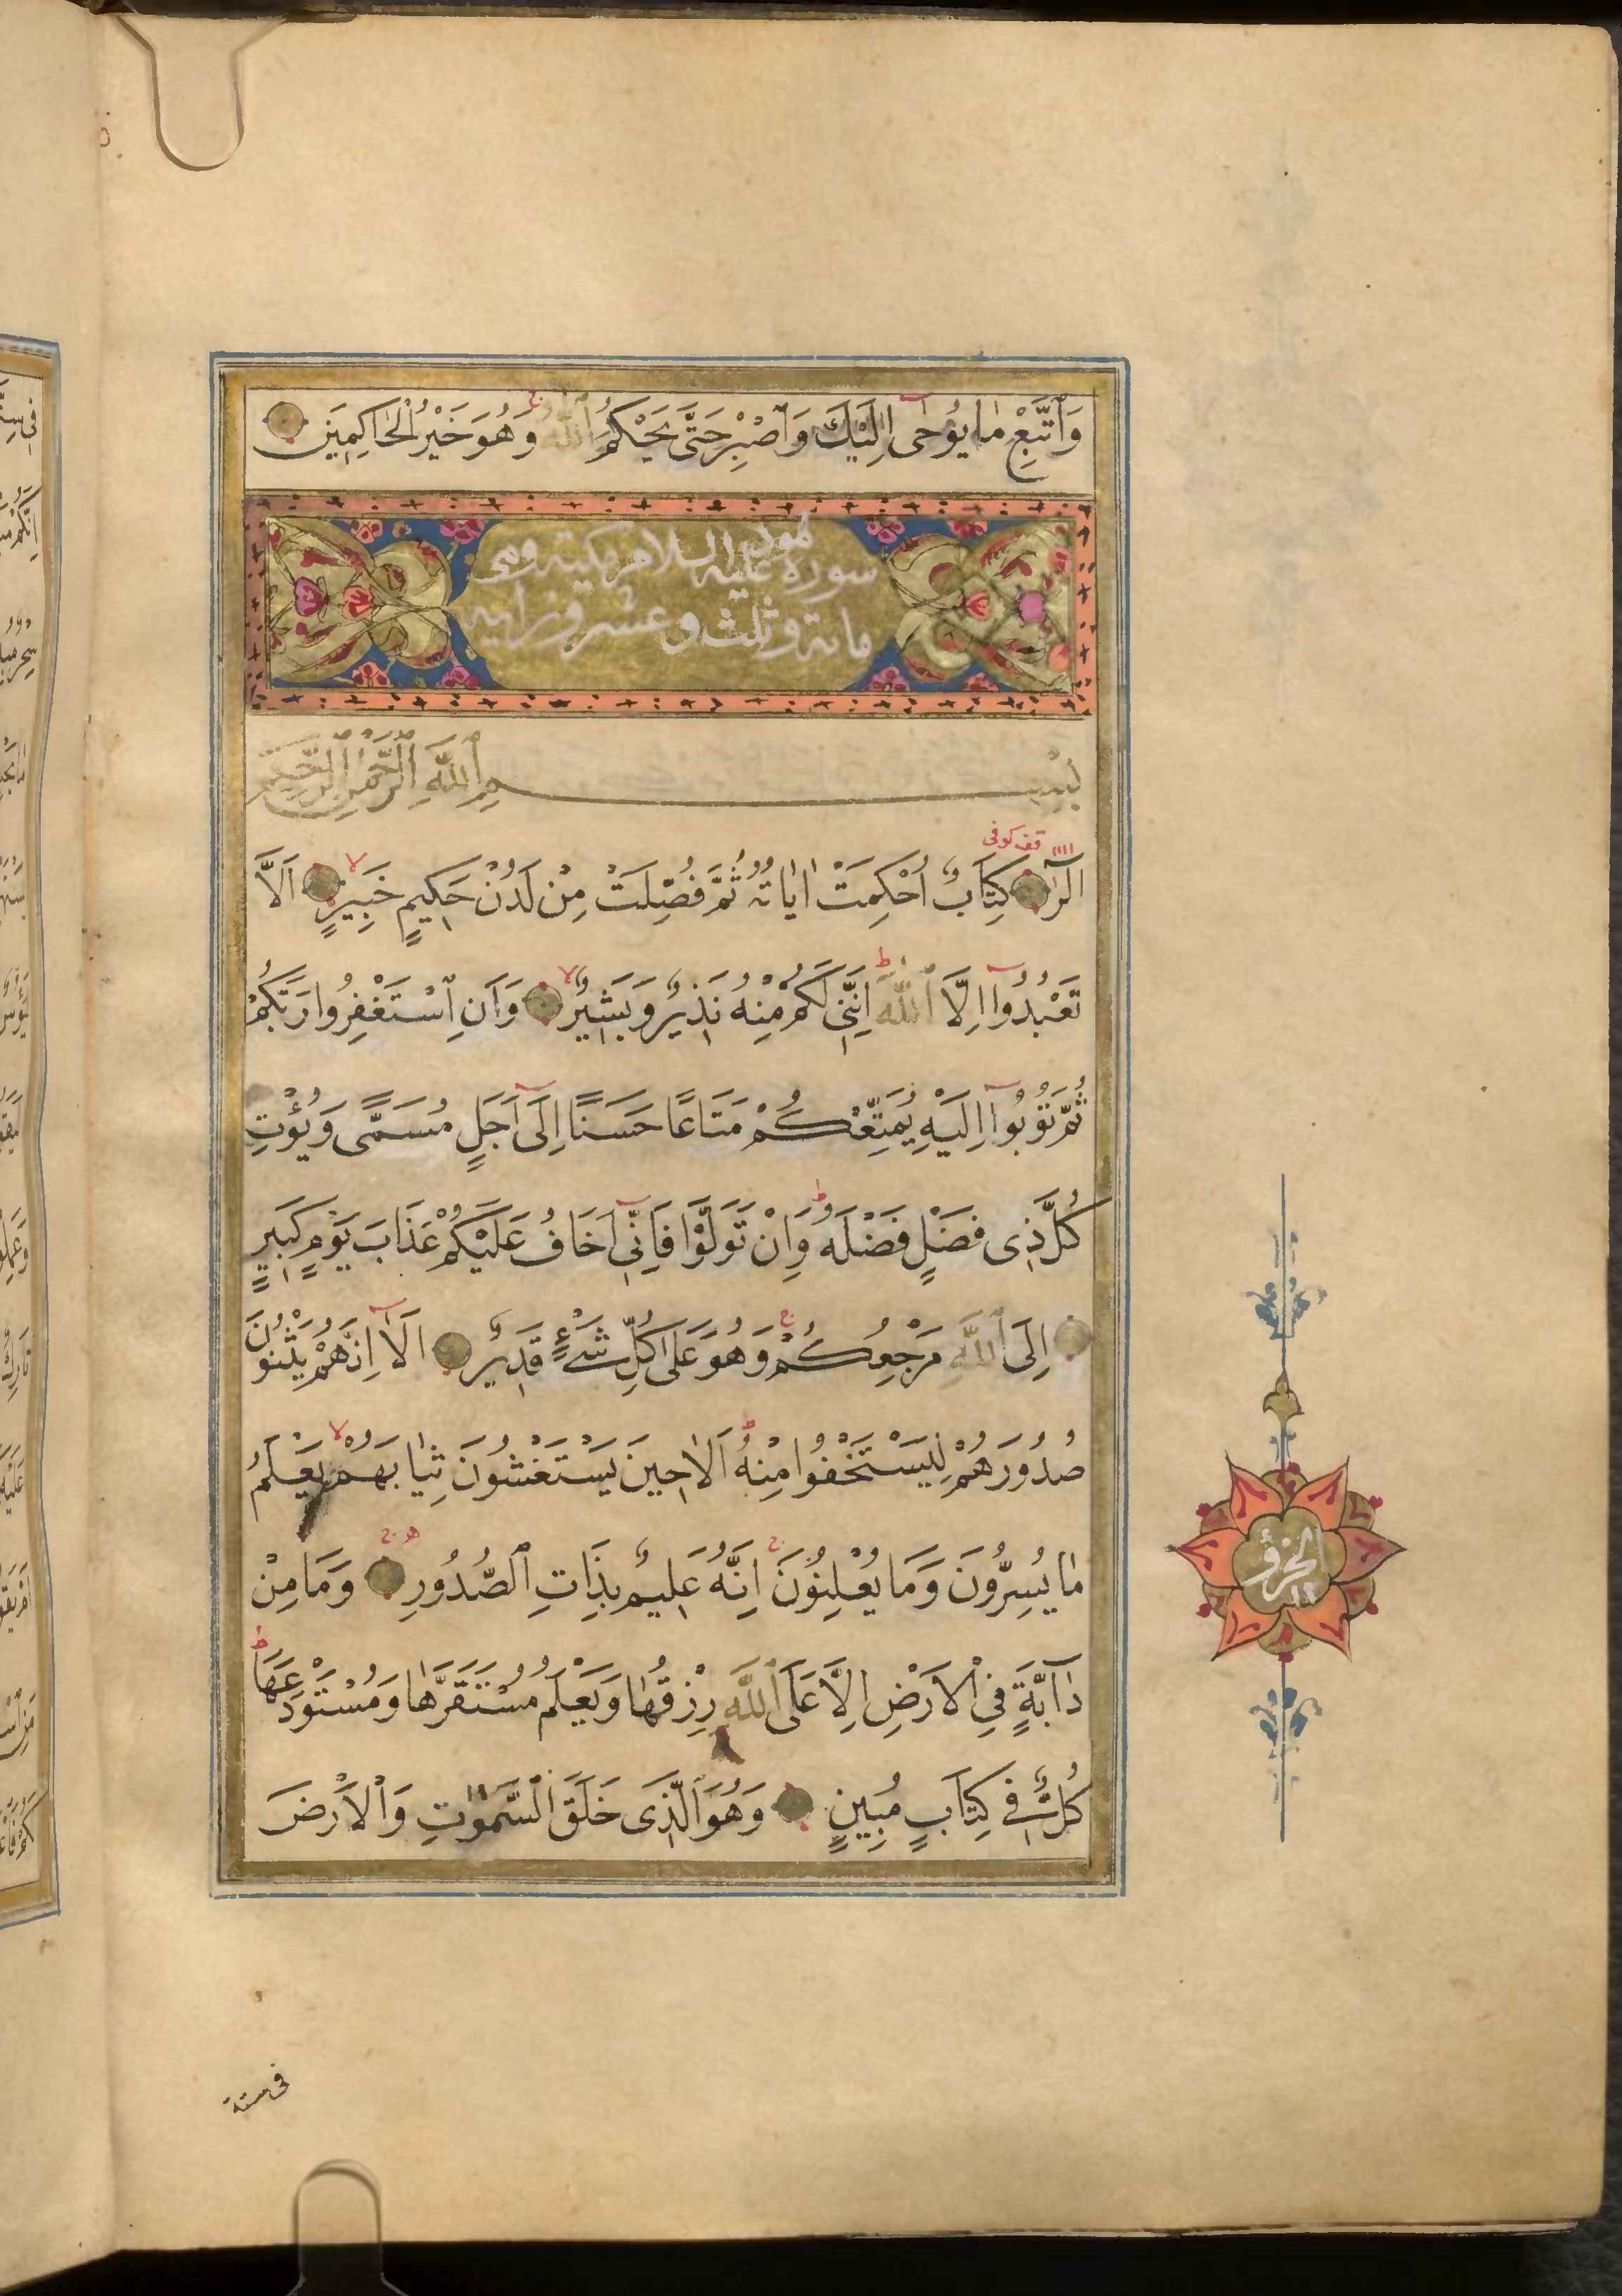 وَٱتَّبِعْ مَا يُوحٰى اِلَيْكَ وَٱصْبِرْ حَتّٰى يَحْكُمَ ٱللّٰهُ وَهُوَ خَيْرُ الْحَاكِمِينَ
سورة هود عليه السلام مكية وهى
مائة وثلث وعشرون اية
بِسْمِ ٱللّٰهِ ٱلرَّحْمٰنِ ٱلرَّحِيمِ
قف كوفى
الٓرٰ كِتَابٌ اُحْكِمَتْ اٰيَاتُهُ ثُمَّ فُصِّلَتْ مِنْ لَدُنْ حَكِيمٍ خَبِيرٍ اَلَّا
تَعْبُدُوٓا اِلَّا ٱللّٰهَ اِنَّنِى لَكُمْ مِنْهُ نَذِيرٌ وَبَشِيرٌ وَاَنِ ٱسْتَغْفِرُوا رَبَّكُمْ
ثُمَّ تُوبُوٓا اِلَيْهِ يُمَتِّعْكُمْ مَتَاعًا حَسَنًا اِلٰٓى اَجَلٍ مُسَمًّى وَيُؤْتِ
كُلَّ ذِى فَضْلٍ فَضْلَهُ وَاِنْ تَوَلَّوْا فَاِنِّىٓ اَخَافُ عَلَيْكُمْ عَذَابَ يَوْمٍ كَبِيرٍ
اِلَى ٱللّٰهِ مَرْجِعُكُمْ وَهُوَ عَلٰى كُلِّ شَىْءٍ قَدِيرٌ اَلَآ اِنَّهُمْ يَثْنُونَ
صُدُورَهُمْ لِيَسْتَخْفُوا مِنْهُ اَلَا حِينَ يَسْتَغْشُونَ ثِيَابَهُمْ يَعْلَمُ
مَا يُسِرُّونَ وَمَا يُعْلِنُونَ اِنَّهُ عَلِيمٌ بِذَاتِ ٱلصُّدُورِ وَمَا مِنْ
دَآبَّةٍ فِى الْاَرْضِ اِلَّا عَلَى ٱللّٰهِ رِزْقُهَا وَيَعْلَمُ مُسْتَقَرَّهَا وَمُسْتَوْدَعَهَا
كُلٌّ فِى كِتَابٍ مُبِينٍ وَهُوَ ٱلَّذِى خَلَقَ ٱلسَّمٰوَاتِ وَٱلْاَرْضَ
الجزو
فى ستة